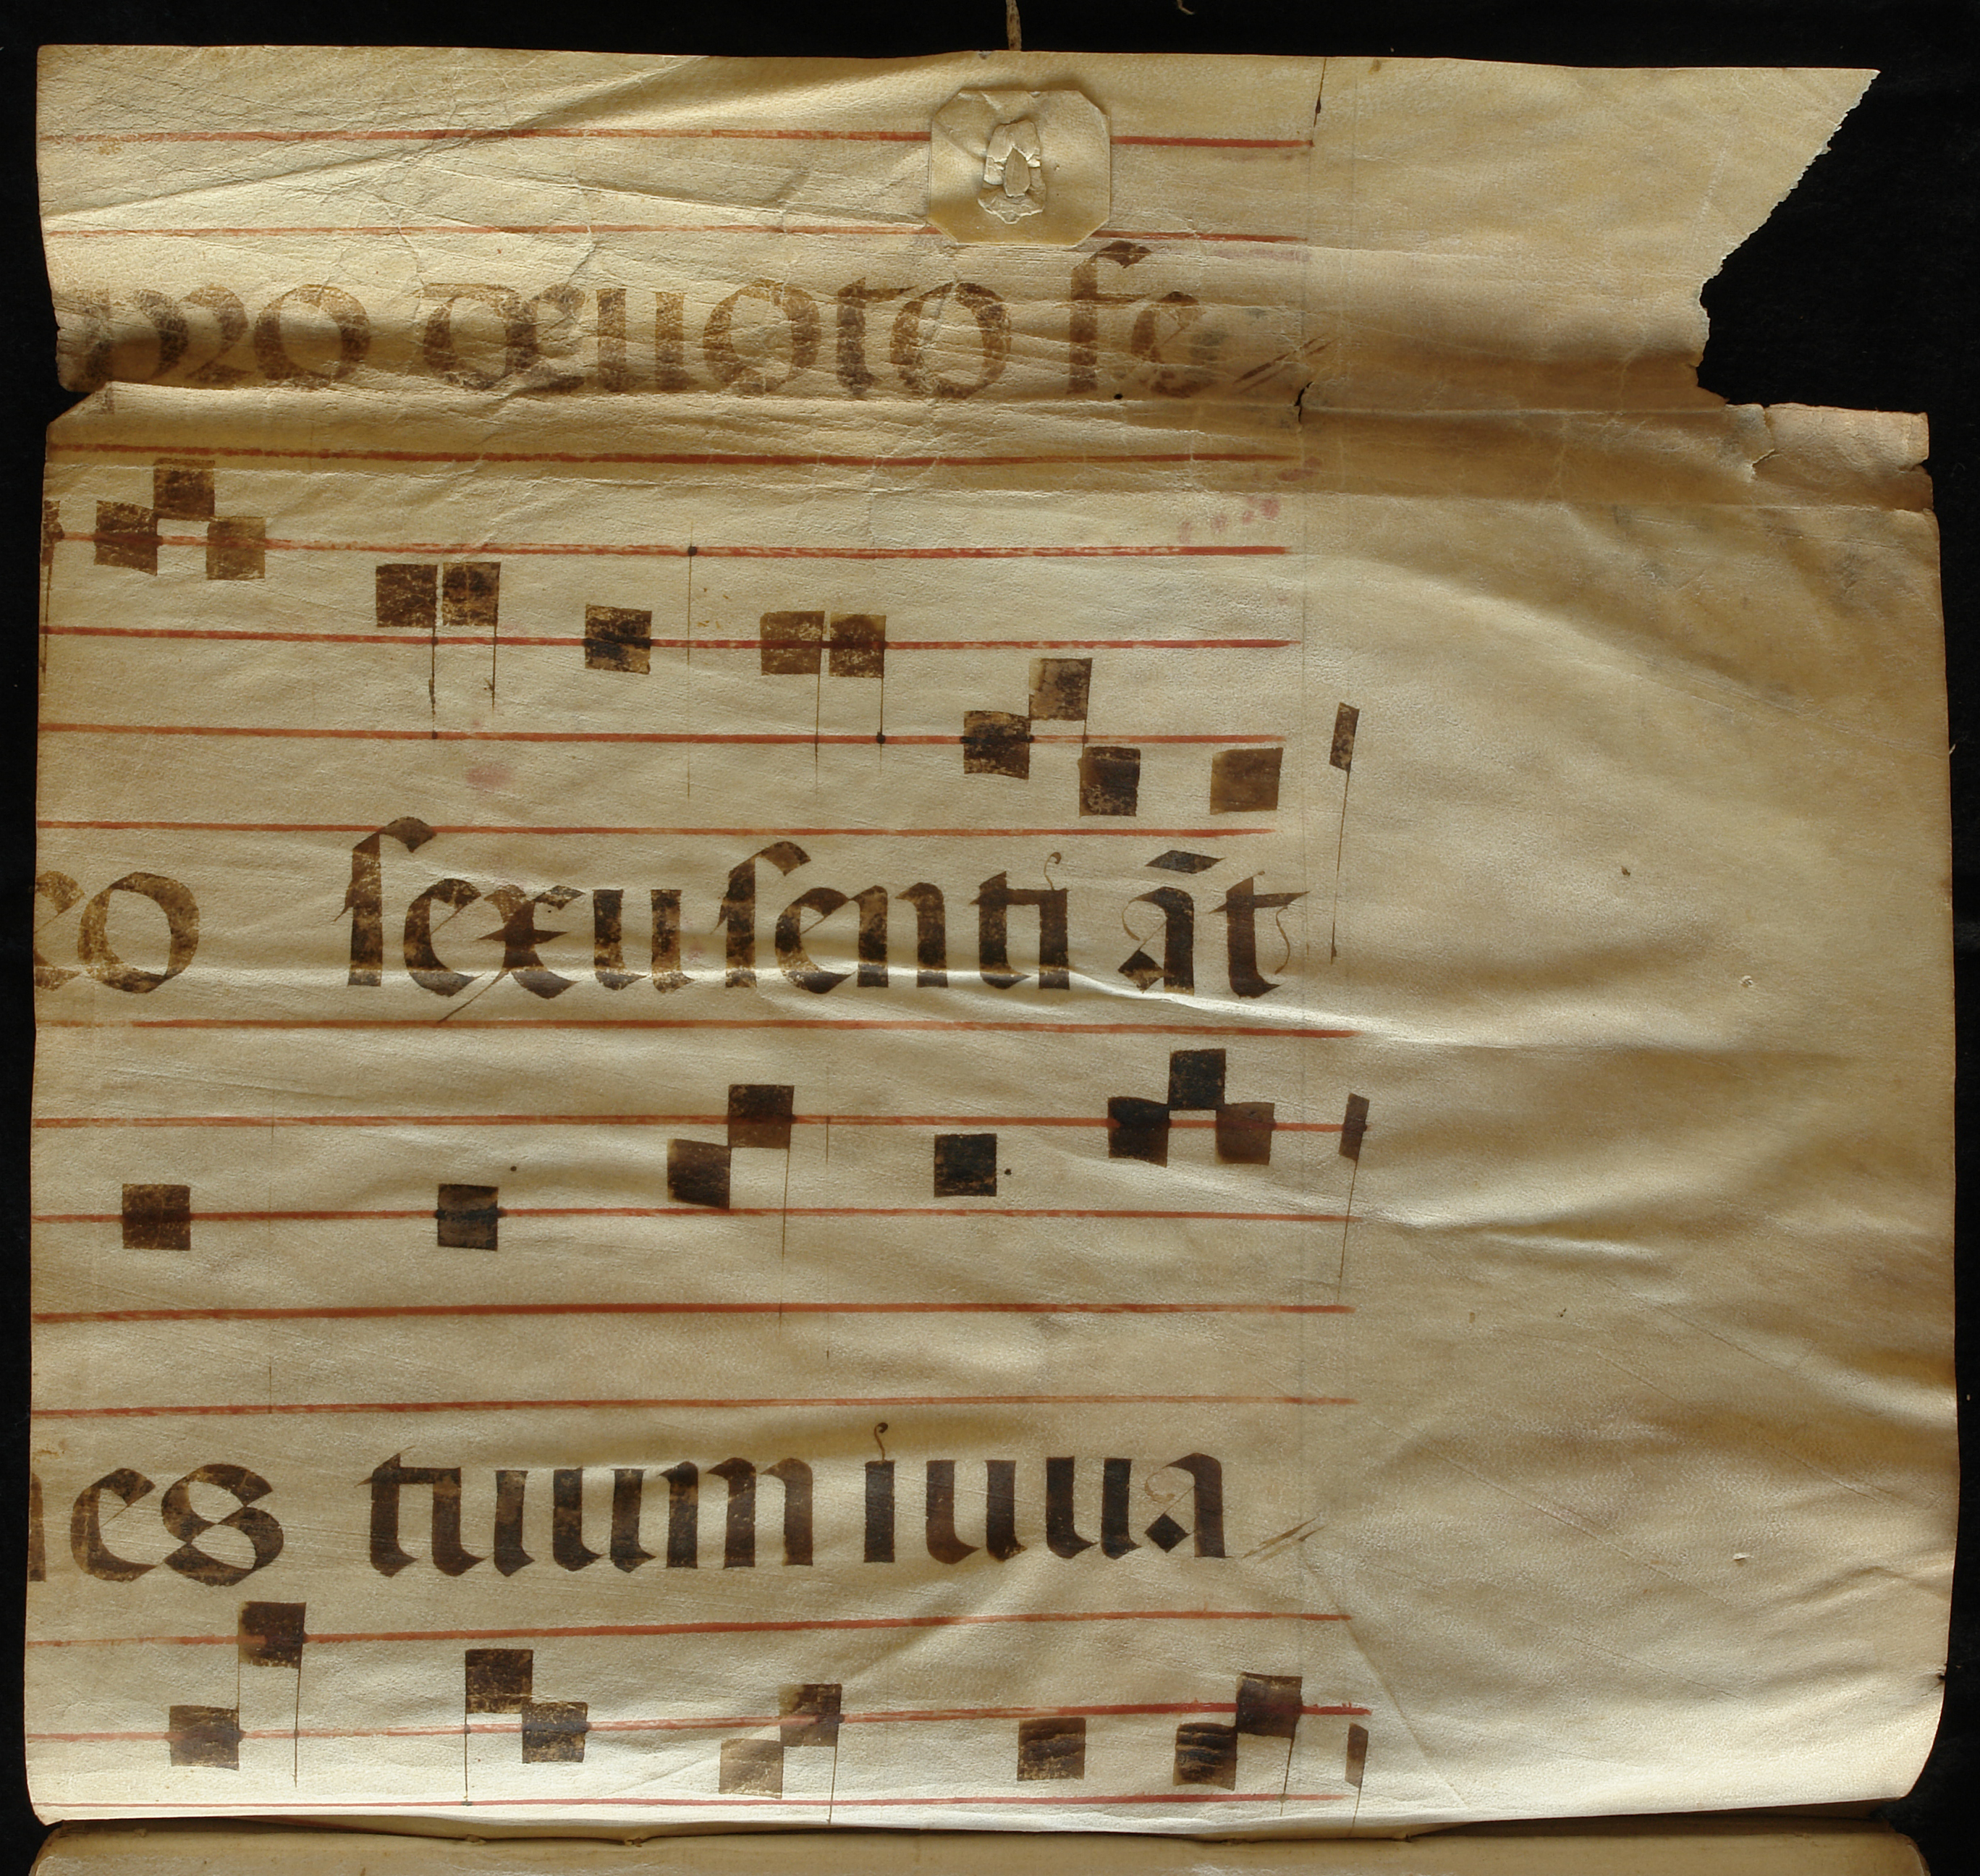 pro deuoto fe //
eo ſexu ſenti āt
nes tuum iuua //